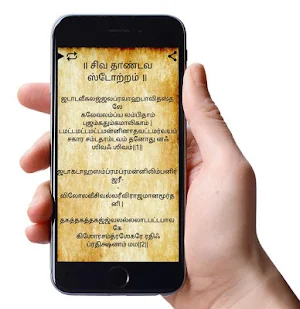 ॥ சிவ தாண்டவ
ஸ்டோற்றம் ॥
ஜடாடவீகலஜ்ஜலப்ரவாஹபாவிதஸ்த
லே
கலேவலம்ப்ய லம்பிதாம்
புஜம்கதும்கமாலிகாம் |
டமட்டமட்டமட்டமன்னினாதவட்டமர்வயம்
சகார சம்டதாம்டவம் தனோது னஃ
ஶிவஃ ஶிவம்||1||
ஜடாகடாஹஸம்ப்ரமப்ரமன்னிலிம்பனிர்
ஜரீ-
விலோலவீசிவல்லரீவிராஜமானமூர்த
னி |
தகத்தகத்தகஜ்ஜ்வலல்லலாடபட்டபாவ
கே
கிஶோரசம்த்ரஶேகரே ரதிஃ
ப்ரதிக்ஷணம் மம||2||